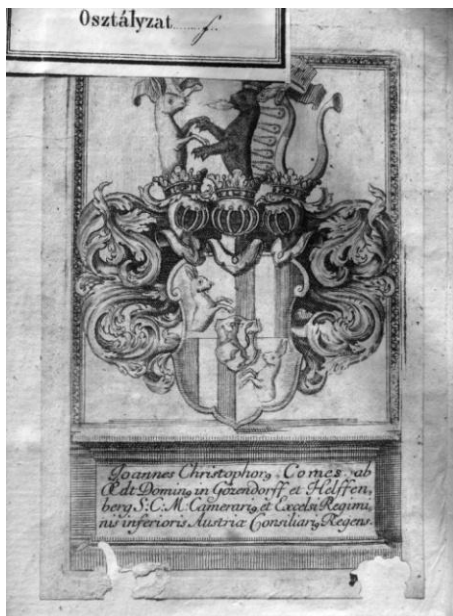 Osztályzat f
Joannes Christophorꝰ Comes ab
Œdt Dominꝰ in Gözendorff et Helffen,
berg S: C: M: Camerariꝰ et Excelsi Regimi,
nis inferioris Austriæ Consiliariꝰ Regens.